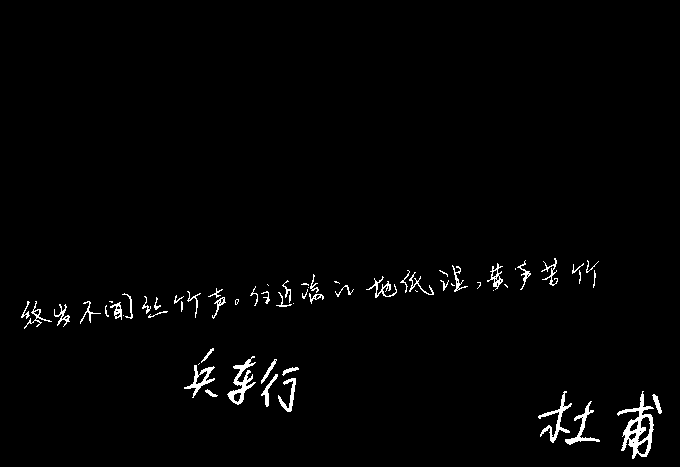 终岁不闻丝竹声。住近湓江地低湿,黄芦苦竹
兵车行
杜甫